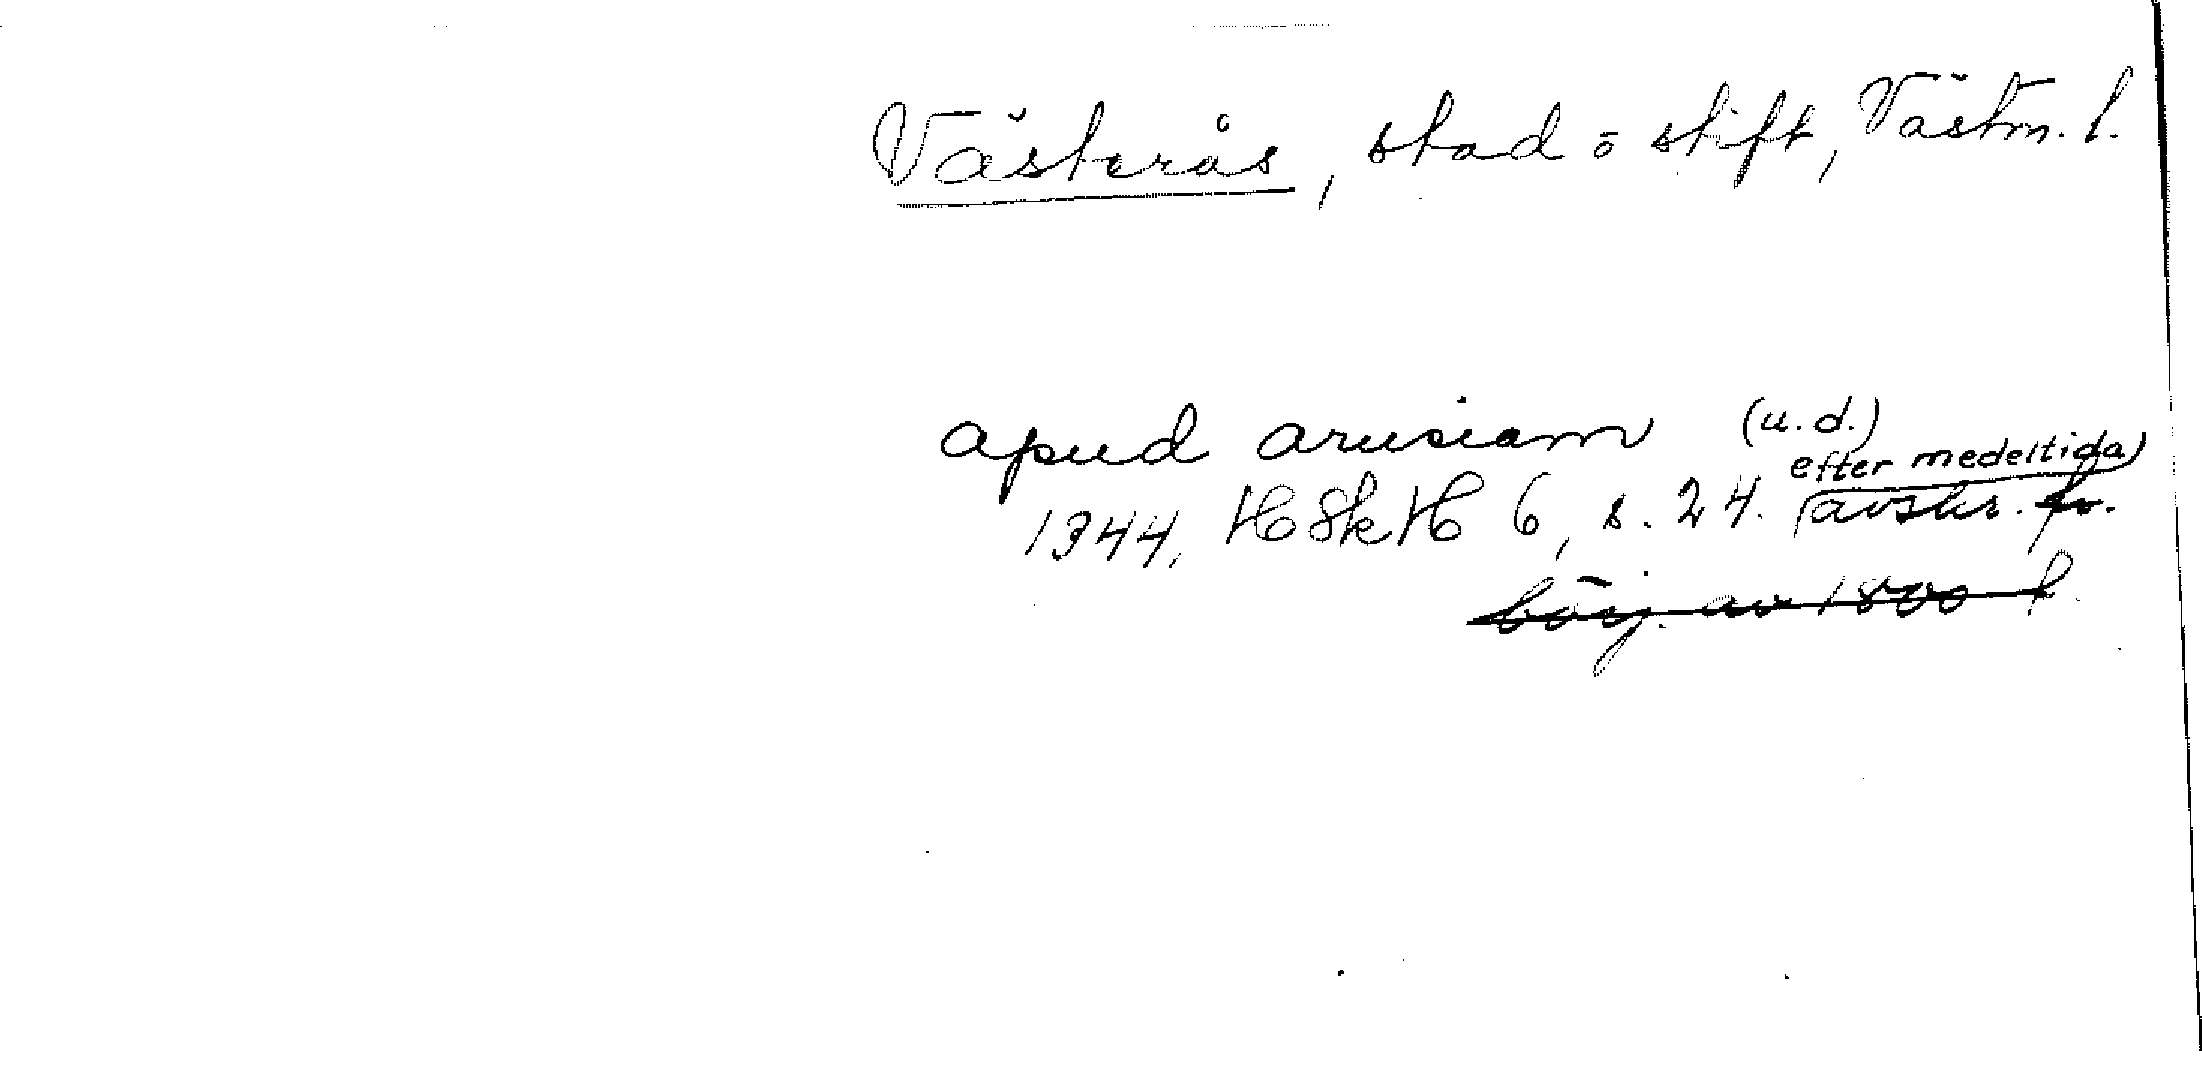 Västerås, stad o stift, Västm. l.
apud arusiam (u.d.)
efter medeltida
1344, HSkH 6, s. 24. avskr. fr.
börj. av 1800 t.